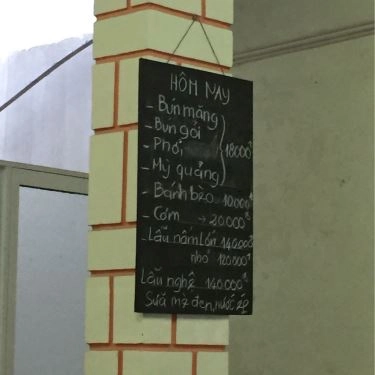 HÔM NAY
- Bún măng
- Bún gỏi
- Phở
- Mỳ quảng } 18000đ
- Bánh bèo 10.000đ
- Cơm → 20.000đ
- Lẩu nấm lớn 140.000đ
nhỏ 120000đ
Lẩu nghệ 140.000đ
Sữa mè đen, nước ép